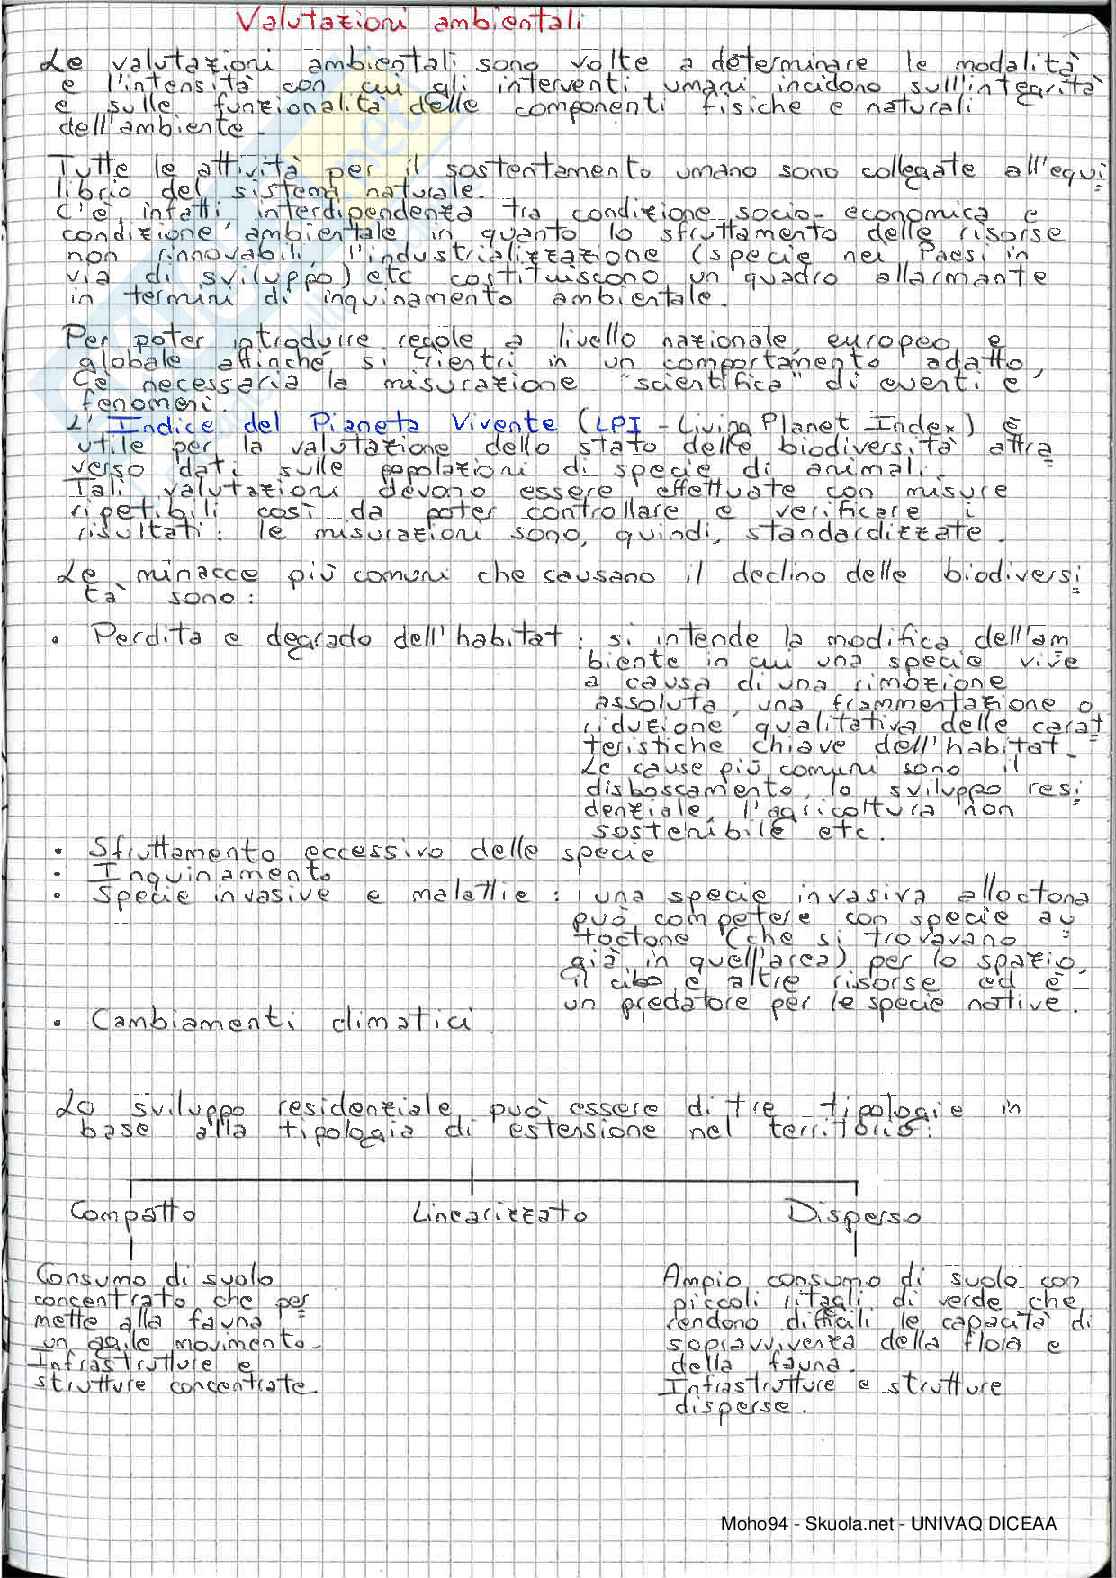 Valutazioni ambientali
Le valutazioni ambientali sono volte a determinare le modalità
e l'intensità con cui gli interventi umani incidono sull'integrità
e sulle funzionalità delle componenti fisiche e naturali
dell'ambiente.
Tutte le attività per il sostentamento umano sono collegate all'equi
librio del sistema naturale.
C'è, infatti, interdipendenza tra condizione socio-economica e
condizione ambientale in quanto lo sfruttamento delle risorse
non rinnovabili, l'industrializzazione (specie nei Paesi in
via di sviluppo) etc costituiscono un quadro allarmante
in termini di inquinamento ambientale.
Per poter introdurre regole a livello nazionale, europeo e
globale affinché si rientri in un comportamento adatto,
è necessaria la misurazione "scientifica" di eventi e
fenomeni.
L'Indice del Pianeta Vivente (LPI - Living Planet Index) è
utile per la valutazione dello stato delle biodiversità attra
verso dati sulle popolazioni di specie di animali.
Tali valutazioni devono essere effettuate con misure
ripetibili così da poter controllare e verificare i
risultati: le misurazioni sono, quindi, standardizzate.
Le minacce più comuni che causano il declino delle biodiversi
tà sono:
• Perdita e degrado dell'habitat: si intende la modifica dell'am
biente in cui una specie vive
a causa di una rimozione
assoluta, una frammentazione o
riduzione qualitativa delle carat
teristiche chiave dell'habitat.
Le cause più comuni sono il
disboscamento, lo sviluppo resi
denziale, l'agricoltura non
sostenibile etc.
• Sfruttamento eccessivo delle specie
• Inquinamento
• Specie invasive e malattie: una specie invasiva alloctona
può competere con specie au
toctone (che si trovavano
già in quell'area) per lo spazio,
il cibo e altre risorse ed è
un predatore per le specie native.
• Cambiamenti climatici
Lo sviluppo residenziale può essere di tre tipologie in
base alla tipologia di estensione nel territorio:
Compatto Linearizzato Disperso
Consumo di suolo
concentrato che per
mette alla fauna
un agile movimento.
Infrastrutture e
strutture concentrate.
Ampio consumo di suolo con
piccoli ritagli di verde che
rendono difficili le capacità di
sopravvivenza della flora e
della fauna.
Infrastrutture e strutture
disperse.
Moho94 - Skuola.net - UNIVAQ DICEAA